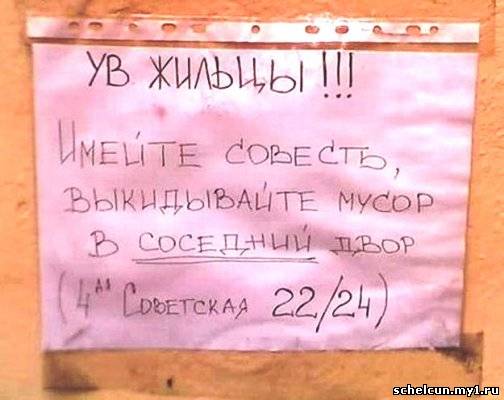 УВ ЖИЛЬЦЫ!!!
ИМЕЙТЕ СОВЕСТЬ,
ВЫКИДЫВАЙТЕ МУСОР
В СОСЕДНИЙ ДВОР
(4ая СОВЕТСКАЯ 22/24)
schelcun.my1.ru